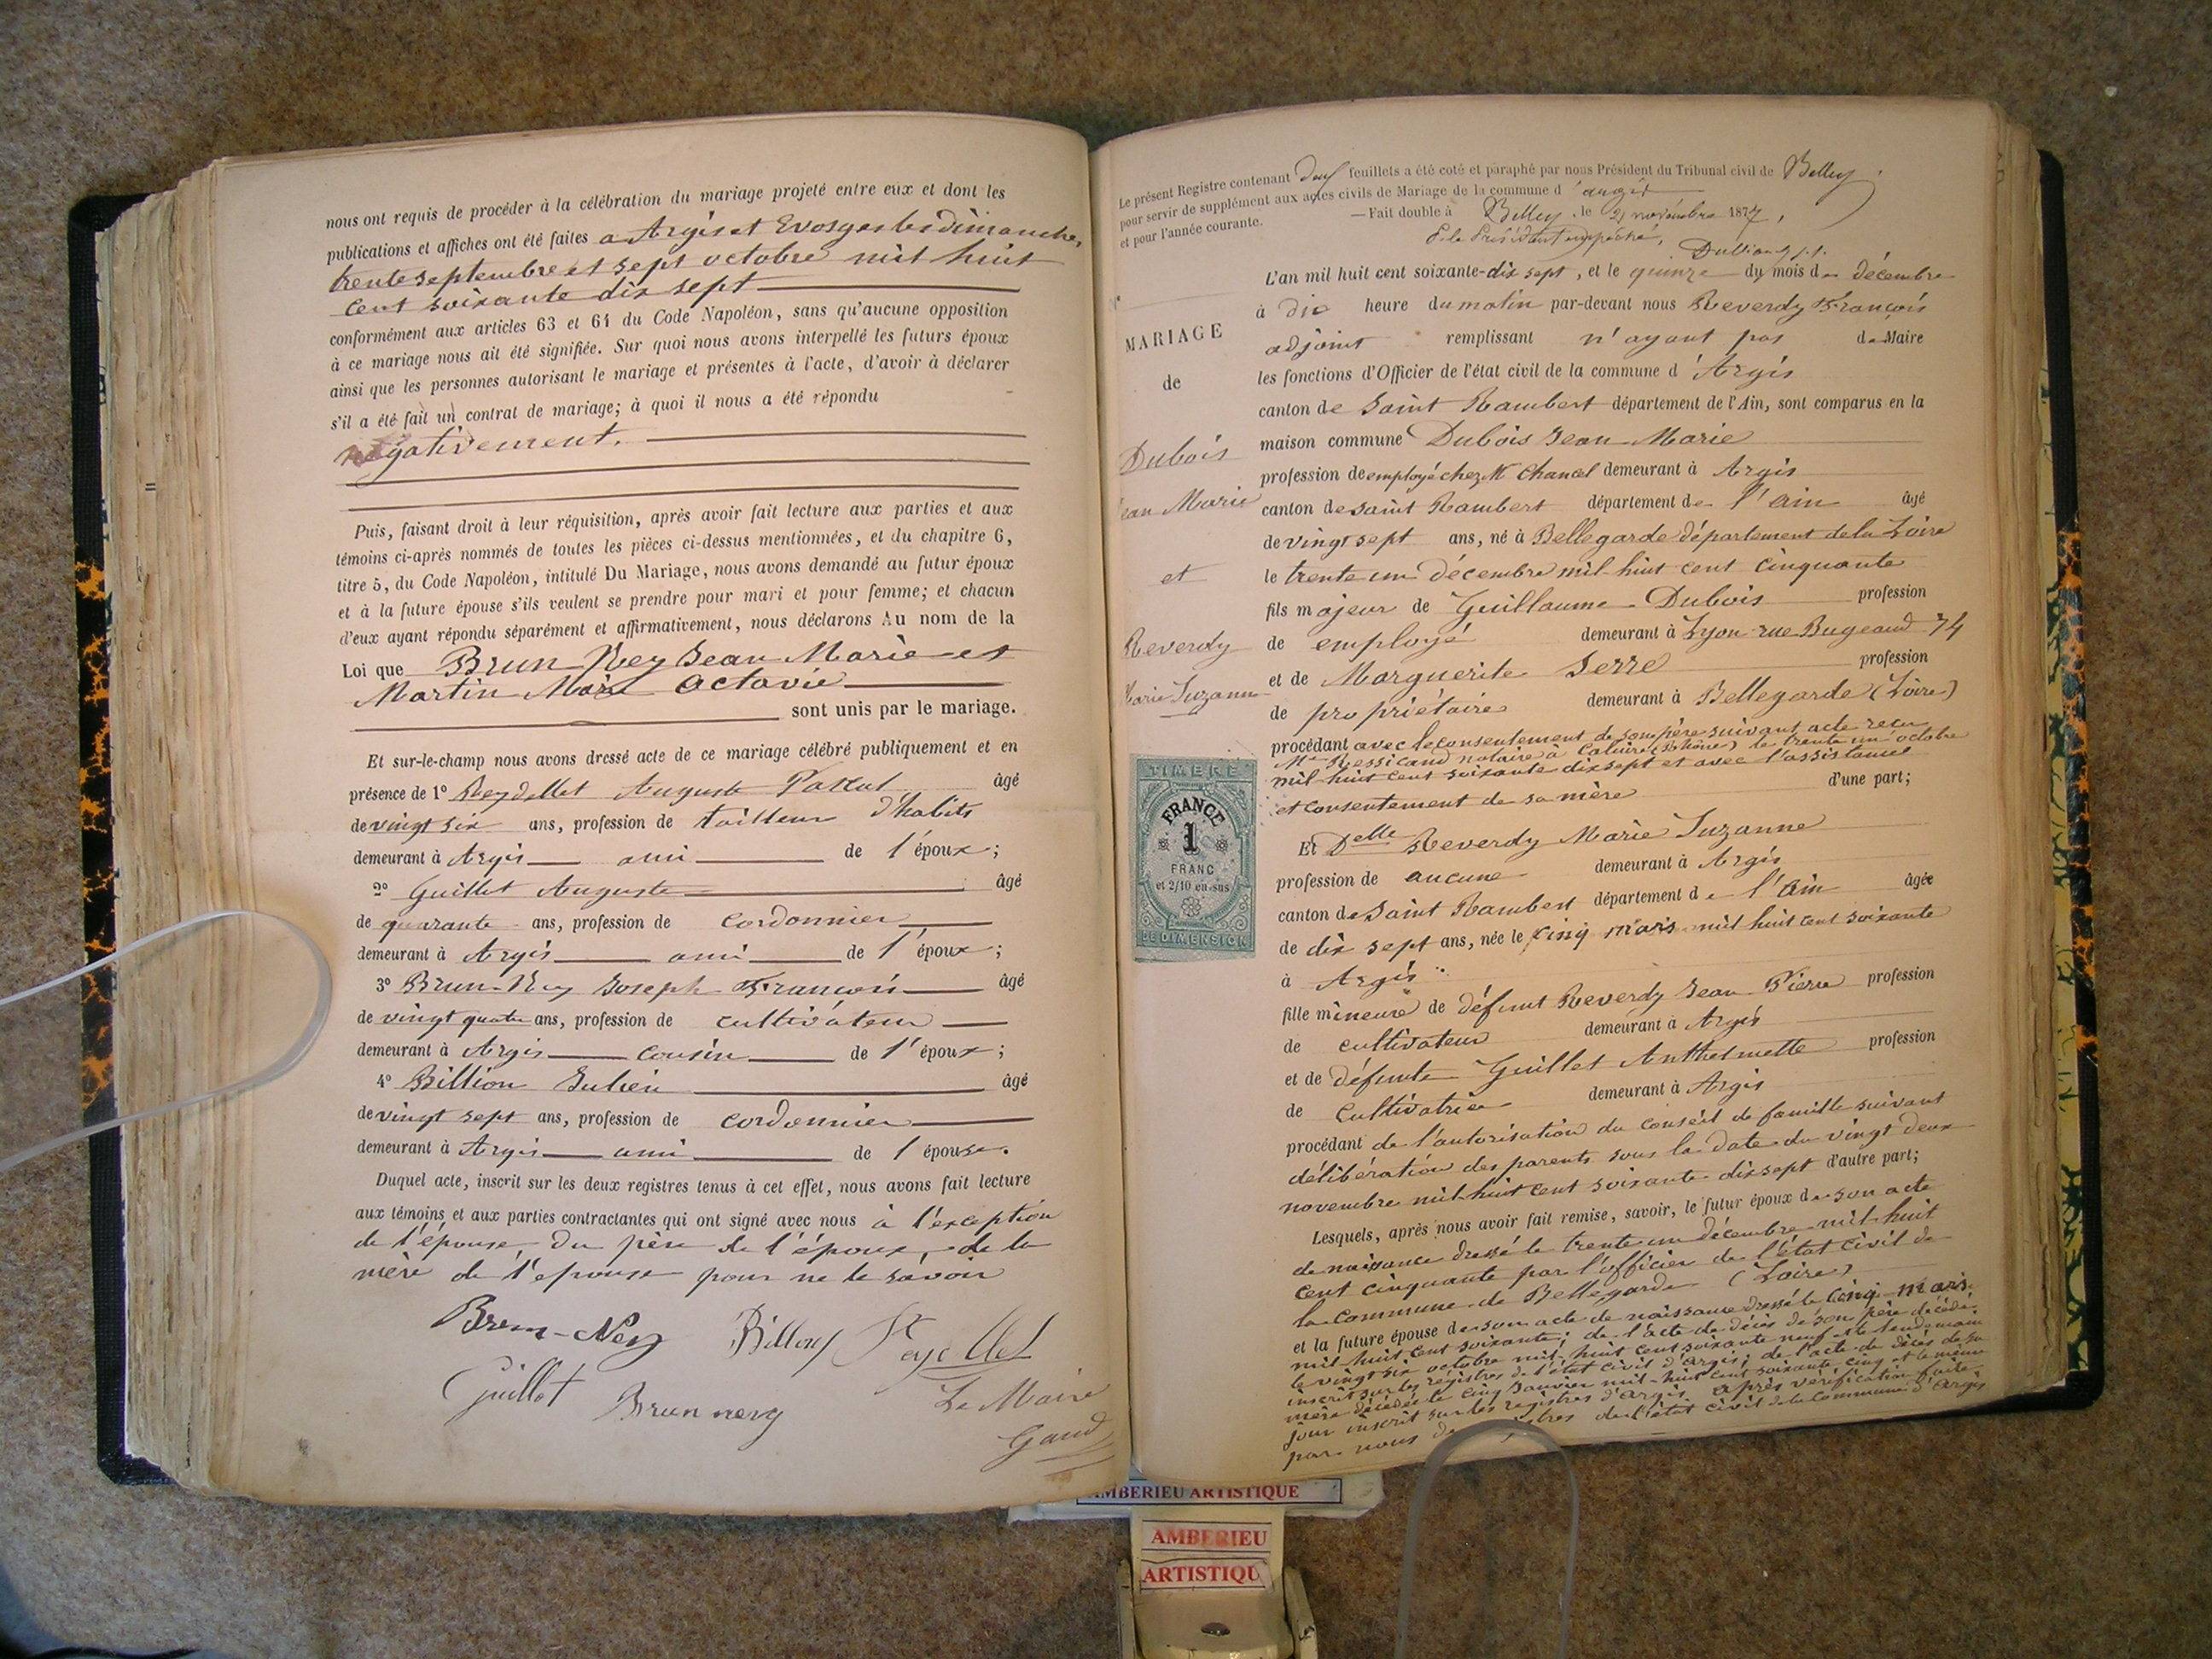 nous ont requis de procéder à la célébration du mariage projeté entre eux et dont les
publications et affiches ont été faites a Argis et Evosges les dimanche,
trente septembre et sept octobre mil huit
cent soixante dix sept
conformément aux articles 63 et 64 du Code Napoléon, sans qu'aucune opposition
à ce mariage nous ait été signifiée. Sur quoi nous avons interpellé les futurs époux
ainsi que les personnes autorisant le mariage et présentes à l'acte, d'avoir à déclarer
s'il a été fait un contrat de mariage; à quoi il nous a été répondu
négativement.
Puis, faisant droit à leur réquisition, après avoir fait lecture aux parties et aux
témoins ci-après nommés de toutes les pièces ci-dessus mentionnées, et du chapitre 6,
titre 5, du Code Napoléon, intitulé Du Mariage, nous avons demandé au futur époux
et à la future épouse s'ils veulent se prendre pour mari et pour femme; et chacun
d'eux ayant répondu séparément et affirmativement, nous déclarons Au nom de la
Loi que Brun Ney Jean Marie et
Martin Marie Octavie
sont unis par le mariage.
Et sur-le-champ nous avons dressé acte de ce mariage célébré publiquement et en
présence de 1º Reydellet Auguste Pascal âgé
de vingt six ans, profession de tailleur d'habits
demeurant à Argis ami de l'époux;
2º Guillet Auguste âgé
de quarante ans, profession de cordonnier
demeurant à Argis ami de l'époux;
3º Brun-Ney Joseph François âgé
de vingt quatre ans, profession de cultivateur
demeurant à Argis cousin de l'époux;
4º Billion Julien âgé
de vingt sept ans, profession de cordonnier
demeurant à Argis ami de l'épouse.
Duquel acte, inscrit sur les deux registres tenus à cet effet, nous avons fait lecture
aux témoins et aux parties contractantes qui ont signé avec nous à l'exception
de l'épouse, du père de l'époux, de la
mère de l'épouse pour ne le savoir
Brun-Ney Billion Reydellet
Guillot Brun ney Le Maire
Gaud
Le présent Registre contenant deux feuillets a été coté et paraphé par nous Président du Tribunal civil de Belley
pour servir de supplément aux actes civils de Mariage de la commune d'argis
et pour l'année courante. — Fait double à Belley, le 21 novembre 1877,
P. le Président empêché,
MARIAGE
de
Dubois
Jean Marie
et
Reverdy
Marie Suzanne
TIMBRE
FRANCE
1
FRANC
et 2/10 en sus
DE DIMENSION
L'an mil huit cent soixante-dix sept, et le quinze du mois de décembre
à dix heure du matin par-devant nous Reverdy François
adjoint remplissant n'ayant pas de Maire
les fonctions d'Officier de l'état civil de la commune d'Argis
canton de Saint Rambert département de l'Ain, sont comparus en la
maison commune Dubois Jean Marie
profession de employé chez Mr Chancel demeurant à Argis
canton de saint Rambert département de l'ain âgé
de vingt sept ans, né à Bellegarde département de la Loire
le trente un décembre mil huit cent cinquante
fils majeur de Guillaume Dubois profession
de employé demeurant à Lyon rue Bugeaud 74
et de Marguerite Serre profession
de propriétaire demeurant à Bellegarde (Loire)
procédant avec le consentement de son père suivant acte reçu
Me Ressicaud notaire à Caluire (Rhône) le trente un octobre
mil huit cent soixante dix sept et avec l'assistance
et consentement de sa mère d'une part;
Et Delle Reverdy Marie Suzanne
profession de aucune demeurant à Argis
canton de Saint Rambert département de l'Ain âgée
de dix sept ans, née le cinq mars mil huit cent soixante
à Argis
fille mineure de défunt Reverdy Jean Pierre profession
de cultivateur demeurant à Argis
et de défunte Guillet Anthelmette profession
de Cultivatrice demeurant à Argis
procédant de l'autorisation du conseil de famille suivant
délibération des parents sous la date du vingt deux
novembre mil huit cent soixante dix sept d'autre part;
Lesquels, après nous avoir fait remise, savoir, le futur époux de son acte
de naissance dressé le trente un décembre mil huit
cent cinquante par l'officier de l'état civil de
la commune de Bellegarde (Loire)
et la future épouse de son acte de naissance dressé le cinq mars
mil huit cent soixante; de l'acte de décès de son père décédé
le vingt six octobre mil huit cent soixante neuf et le lendemain
inscrit sur les régistres de l'état civil d'Argis; de l'acte de décès de sa
mère décédée le cinq Janvier mil huit cent soixante cinq et le même
jour inscrit sur les registres d'Argis après vérification faite
par nous de l'état civil de la commune d'Argis
AMBERIEU ARTISTIQUE
AMBERIEU
ARTISTIQU